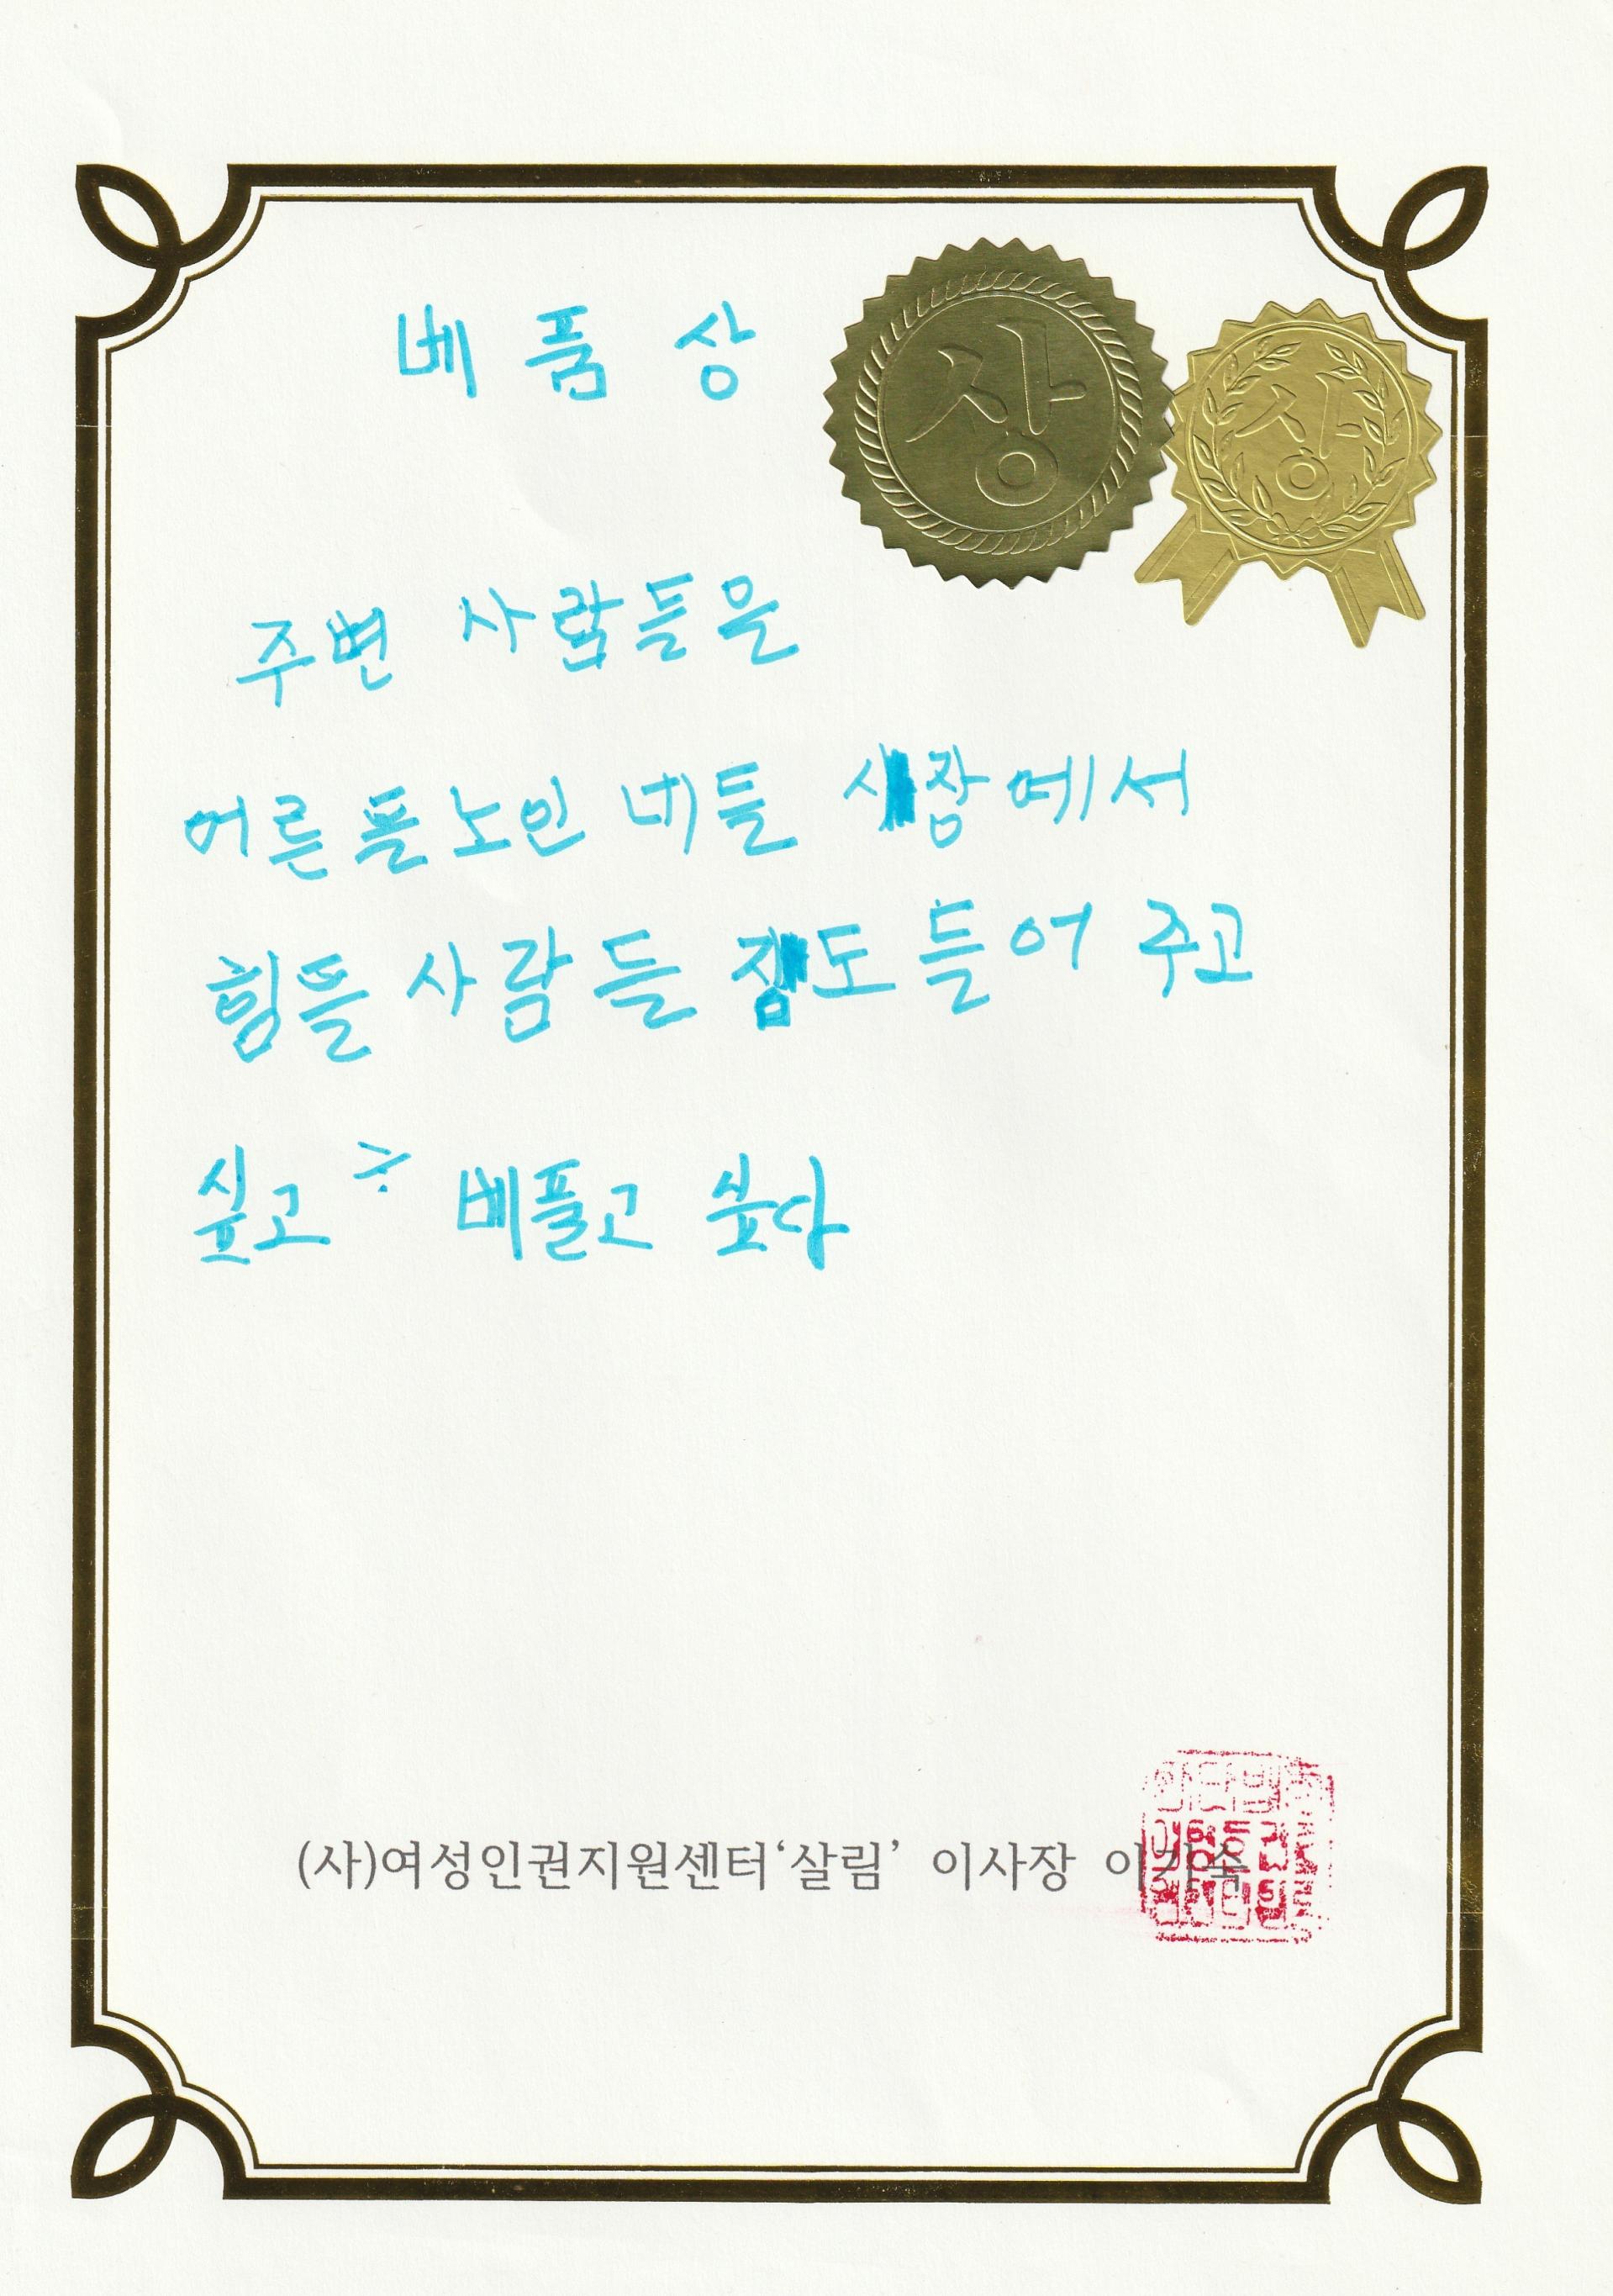 베품상
상
상
주변 사람들을
어른들 노인네들 시장에서
힘들 사람들 짐도 들어 주고
싶고 베플고 싶다
(사)여성인권지원센터‘살림’ 이사장